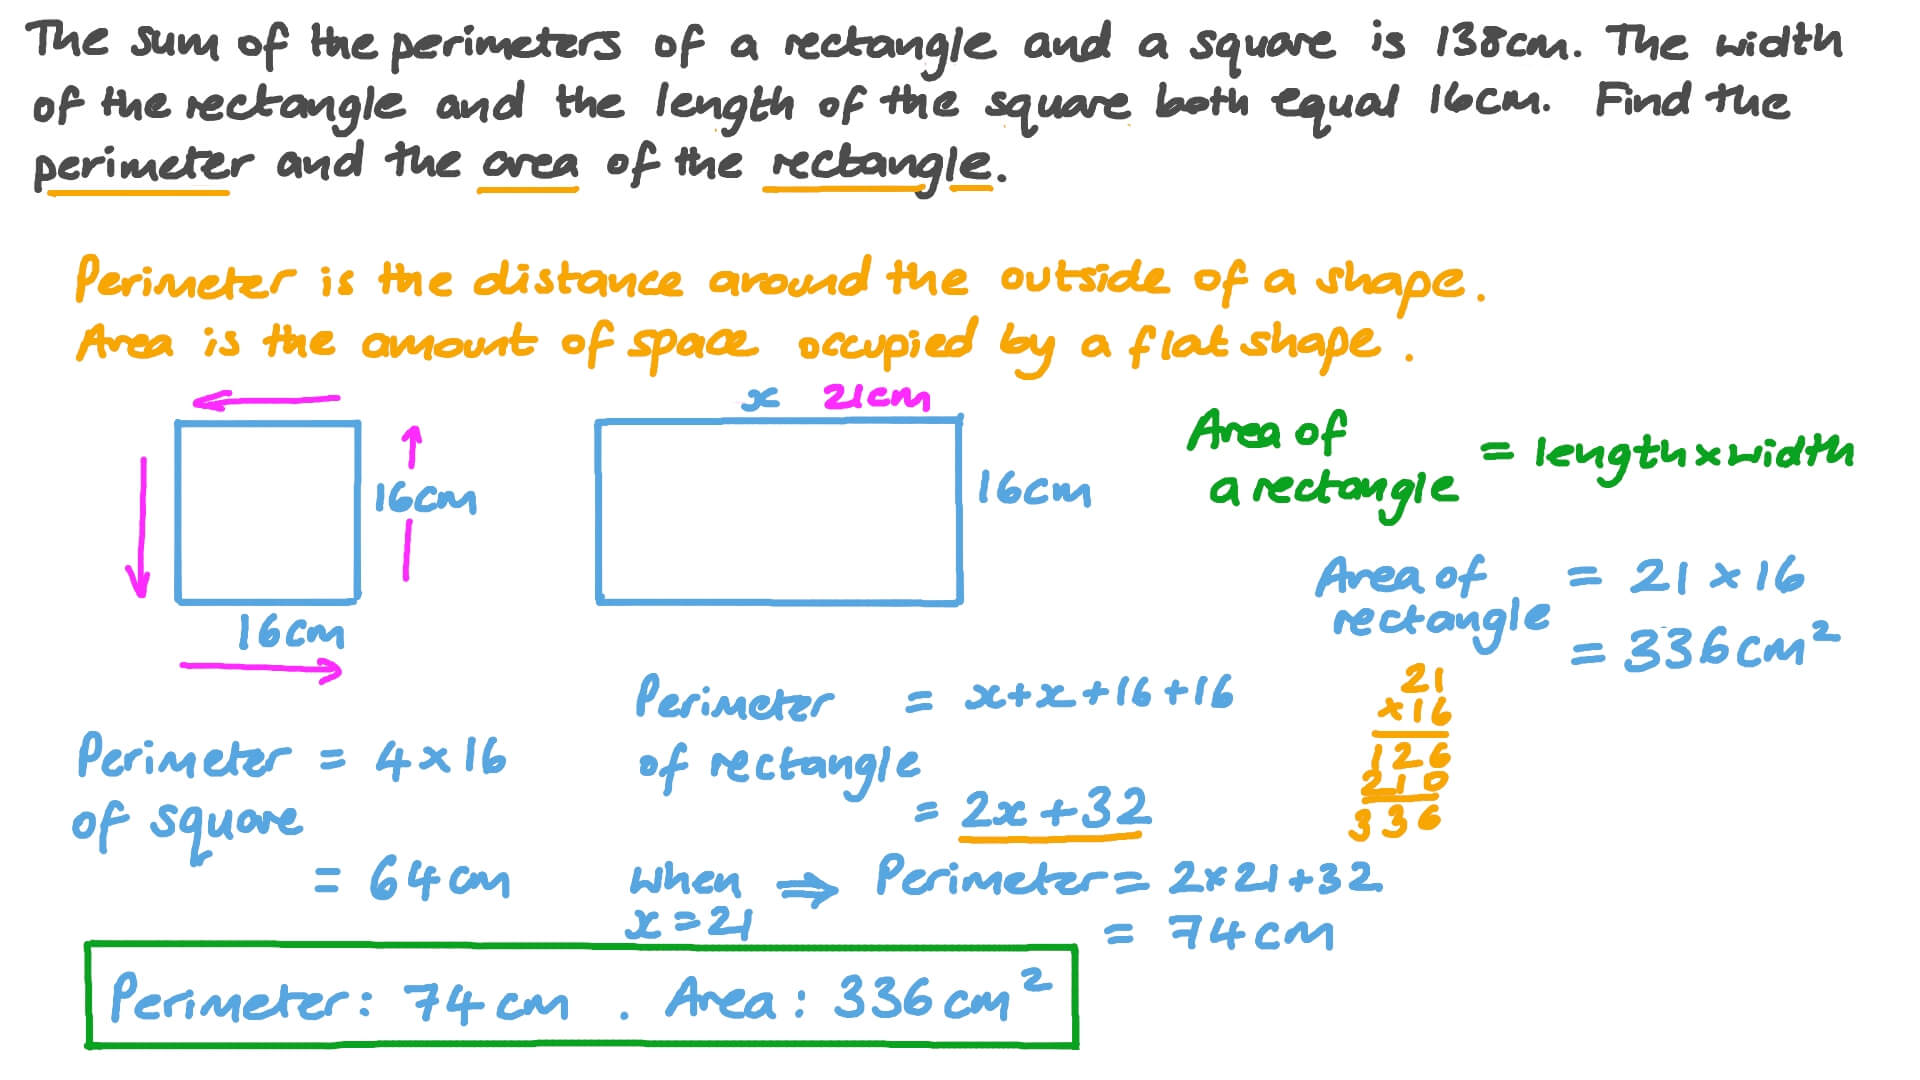 The sum of the perimeters of a rectangle and a square is 138cm. The width
of the rectangle and the length of the square both equal 16cm. Find the
perimeter and the area of the rectangle.
Perimeter is the distance around the outside of a shape.
Area is the amount of space occupied by a flat shape.
16cm
16cm
x 21cm
16cm
Area of
a rectangle = length x width
Area of
rectangle = 21 x 16
= 336cm²
21
x16
126
210
336
Perimeter
of square = 4 x 16
= 64cm
Perimeter
of rectangle = x+x+16+16
= 2x+32
when
x=21 ⇒ Perimeter = 2x21+32
= 74cm
Perimeter: 74cm. Area: 336cm²